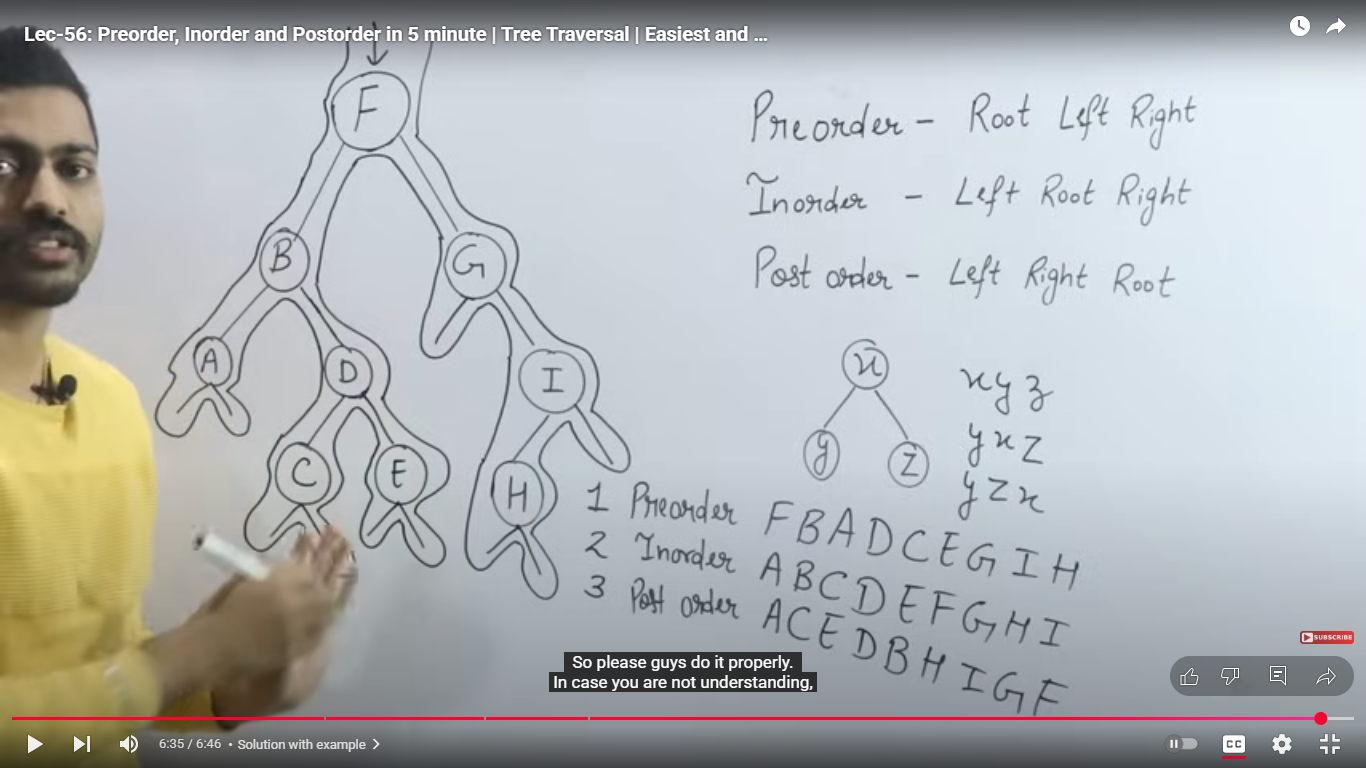 Lec-56: Preorder, Inorder and Postorder in 5 minute | Tree Traversal | Easiest and ...
F
B
G
A
D
I
C
E
H
Preorder - Root Left Right
Inorder - Left Root Right
Post order - Left Right Root
x
y
z
x y z
y x z
y z x
1 Preorder F B A D C E G I H
2 Inorder A B C D E F G H I
3 Post order A C E D B H I G F
So please guys do it properly.
In case you are not understanding,
SUBSCRIBE
6:35 / 6:46 • Solution with example
CC